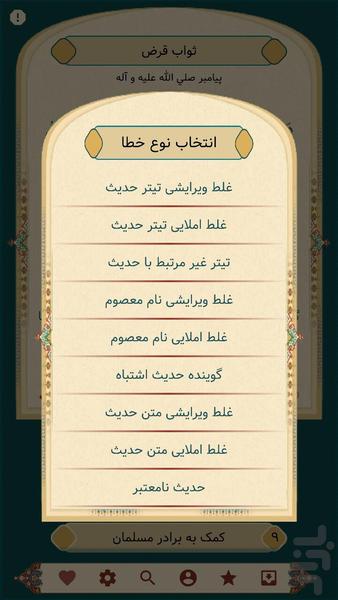 ثواب قرض
پیامبر صلي الله عليه و آله
انتخاب نوع خطا
غلط ویرایشی تیتر حدیث
غلط املایی تیتر حدیث
تیتر غیر مرتبط با حدیث
غلط ویرایشی نام معصوم
غلط املایی نام معصوم
گوینده حدیث اشتباه
غلط ویرایشی متن حدیث
غلط املایی متن حدیث
حدیث نامعتبر
۹ کمک به برادر مسلمان
بازار